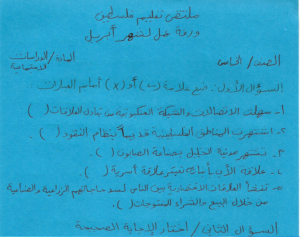 ملتقى تعليم فلسطين
ورقة عمل لشهر أبريل
الصف / الخامس المادة / الدراسات الاجتماعية
السؤال الأول : ضع علامة (✓) أو (x) أمام العبارات
1- سهلت الاتصالات والشبكة العنكبوتية من تبادل العلاقات ( )
2- اشتهرت المناطق الفلسطينية قديماً بنظام النقود ( )
3- تشتهر مدينة الخليل بصناعة الصابون ( ) .
4- علاقة الأب بأبنائه تعتبر علاقة أسرية ( )
5- تنشأ العلاقات الاقتصادية بين الناس لسد حاجاتهم الزراعية والصناعية
من خلال البيع والشراء للمنتوجات ( )
السؤال الثاني / اختار الإجابة الصحيحة